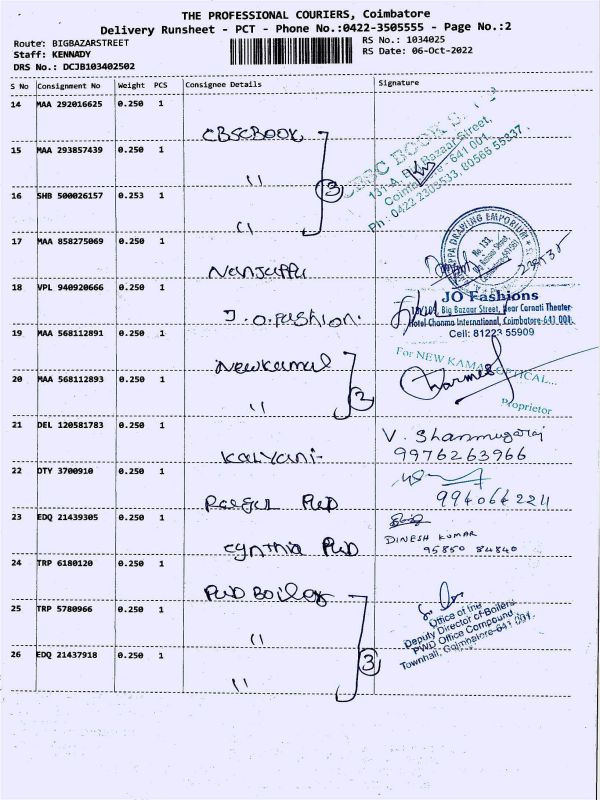 THE PROFESSIONAL COURIERS, Coimbatore
Delivery Runsheet - PCT - Phone No.:0422-3505555 - Page No.:2
Route: BIGBAZARSTREET
RS No.: 1034025
Staff: KENNADY
RS Date: 06-Oct-2022
DRS No.: DCJB103402502
S No Consignment No Weight PCS Consignee Details Signature
14 MAA 292016625 0.250 1
CBSCBOOK
CBSC BOOK
131-A, Big Bazaar Street,
Coimbatore - 641 001.
Ph : 0422 2303533, 80566 55337
15 MAA 293857439 0.250 1
"
3
16 SHB 500026157 0.253 1
"
17 MAA 858275069 0.250 1
Nanjappa
DRAPLING EMPORIUM
No. 133,
18 VPL 940920666 0.250 1
J.O.Fashion.
JO Fashions
Big Bazaar Street, Near Cornati Theater
Hotel Chanma International, Coimbatore-641 001.
Cell: 81223 55909
19 MAA 568112891 0.250 1
Newkamal
For NEW KAMAL OPTICAL....
20 MAA 568112893 0.250 1
"
2
Proprietor
21 DEL 120581783 0.250 1
Kalyani-
V. Shanmugaraj
9976263966
22 OTY 3700910 0.250 1
PWD
9940642211
23 EDQ 21439305 0.250 1
Cynthia PWD
DINESH KUMAR
95850 84840
24 TRP 6180120 0.250 1
PWD Boiler
Office of the
Deputy Director of Boilers
PWD Office Compound
Townhall, Coimbatore-641 001.
25 TRP 5780966 0.250 1
"
3
26 EDQ 21437918 0.250 1
"